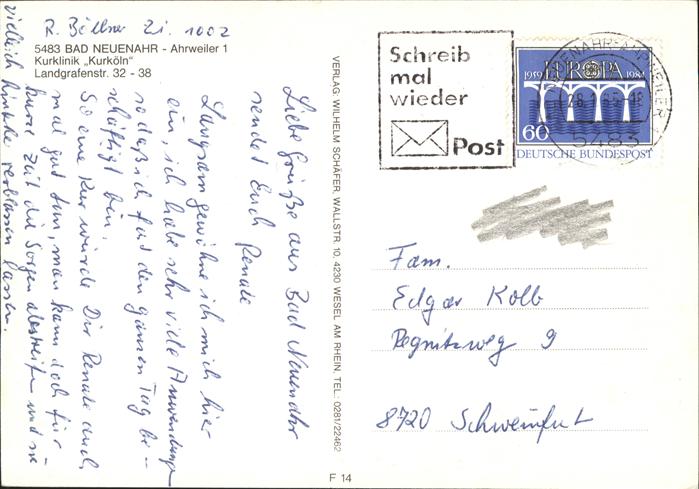 R. Böllner Zi. 1002
5483 BAD NEUENAHR - Ahrweiler 1
Kurklinik „Kurköln"
Landgrafenstr. 32 - 38
Liebe Grüße aus Bad Neuenahr
sendet Euch Renate
Langsam gewöhne ich mich hier
ein, ich habe sehr viele Anwendungen
sodaß ich fast den ganzen Tag be-
schäftigt bin.
So eine Kur würde Dir Renate auch
mal gut tun, man kann doch für
kurze Zeit die Sorgen abstreifen und sie
vielleich hinter verblassen lassen.
VERLAG: WILHELM SCHÄFER, WALLSTR. 10, 4230 WESEL AM RHEIN, TEL.: 0281/22462
F 14
Schreib
mal
wieder
Post
NEUENAHR-AHRWEILER
5483
1959 EUROPA 1984
60
DEUTSCHE BUNDESPOST
Fam.
Edgar Kolb
Pegnitzweg 9
8720 Schweinfurt